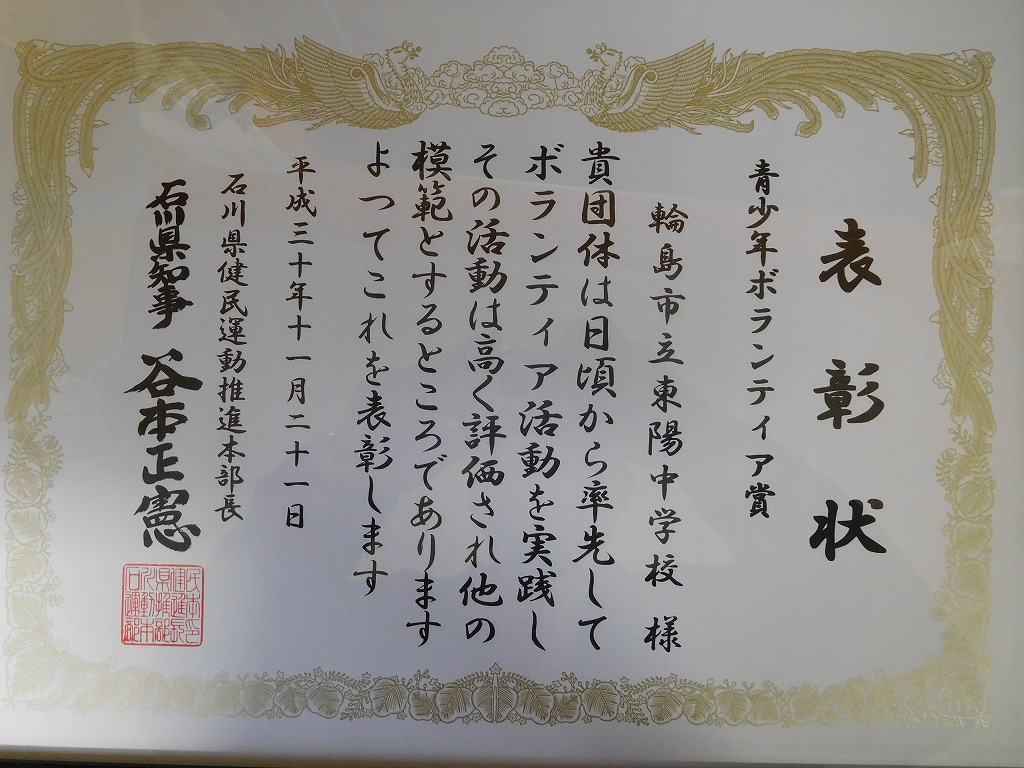 表彰状
青少年ボランティア賞
輪島市立東陽中学校 様
貴団体は日頃から率先して
ボランティア活動を実践し
その活動は高く評価され他の
模範とするところであります
よってこれを表彰します
平成三十年十一月二十一日
石川県健民運動推進本部長
石川県知事 谷本正憲